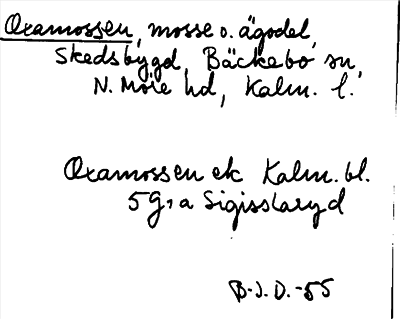 Oxamossen, mosse o. ägodel,
Skedsbygd, Bäckebo sn,
N. Möre hd, Kalm. l.
Oxamossen ek Kalm. bl.
5 G, a Sigisslaryd
B.J.D.-55